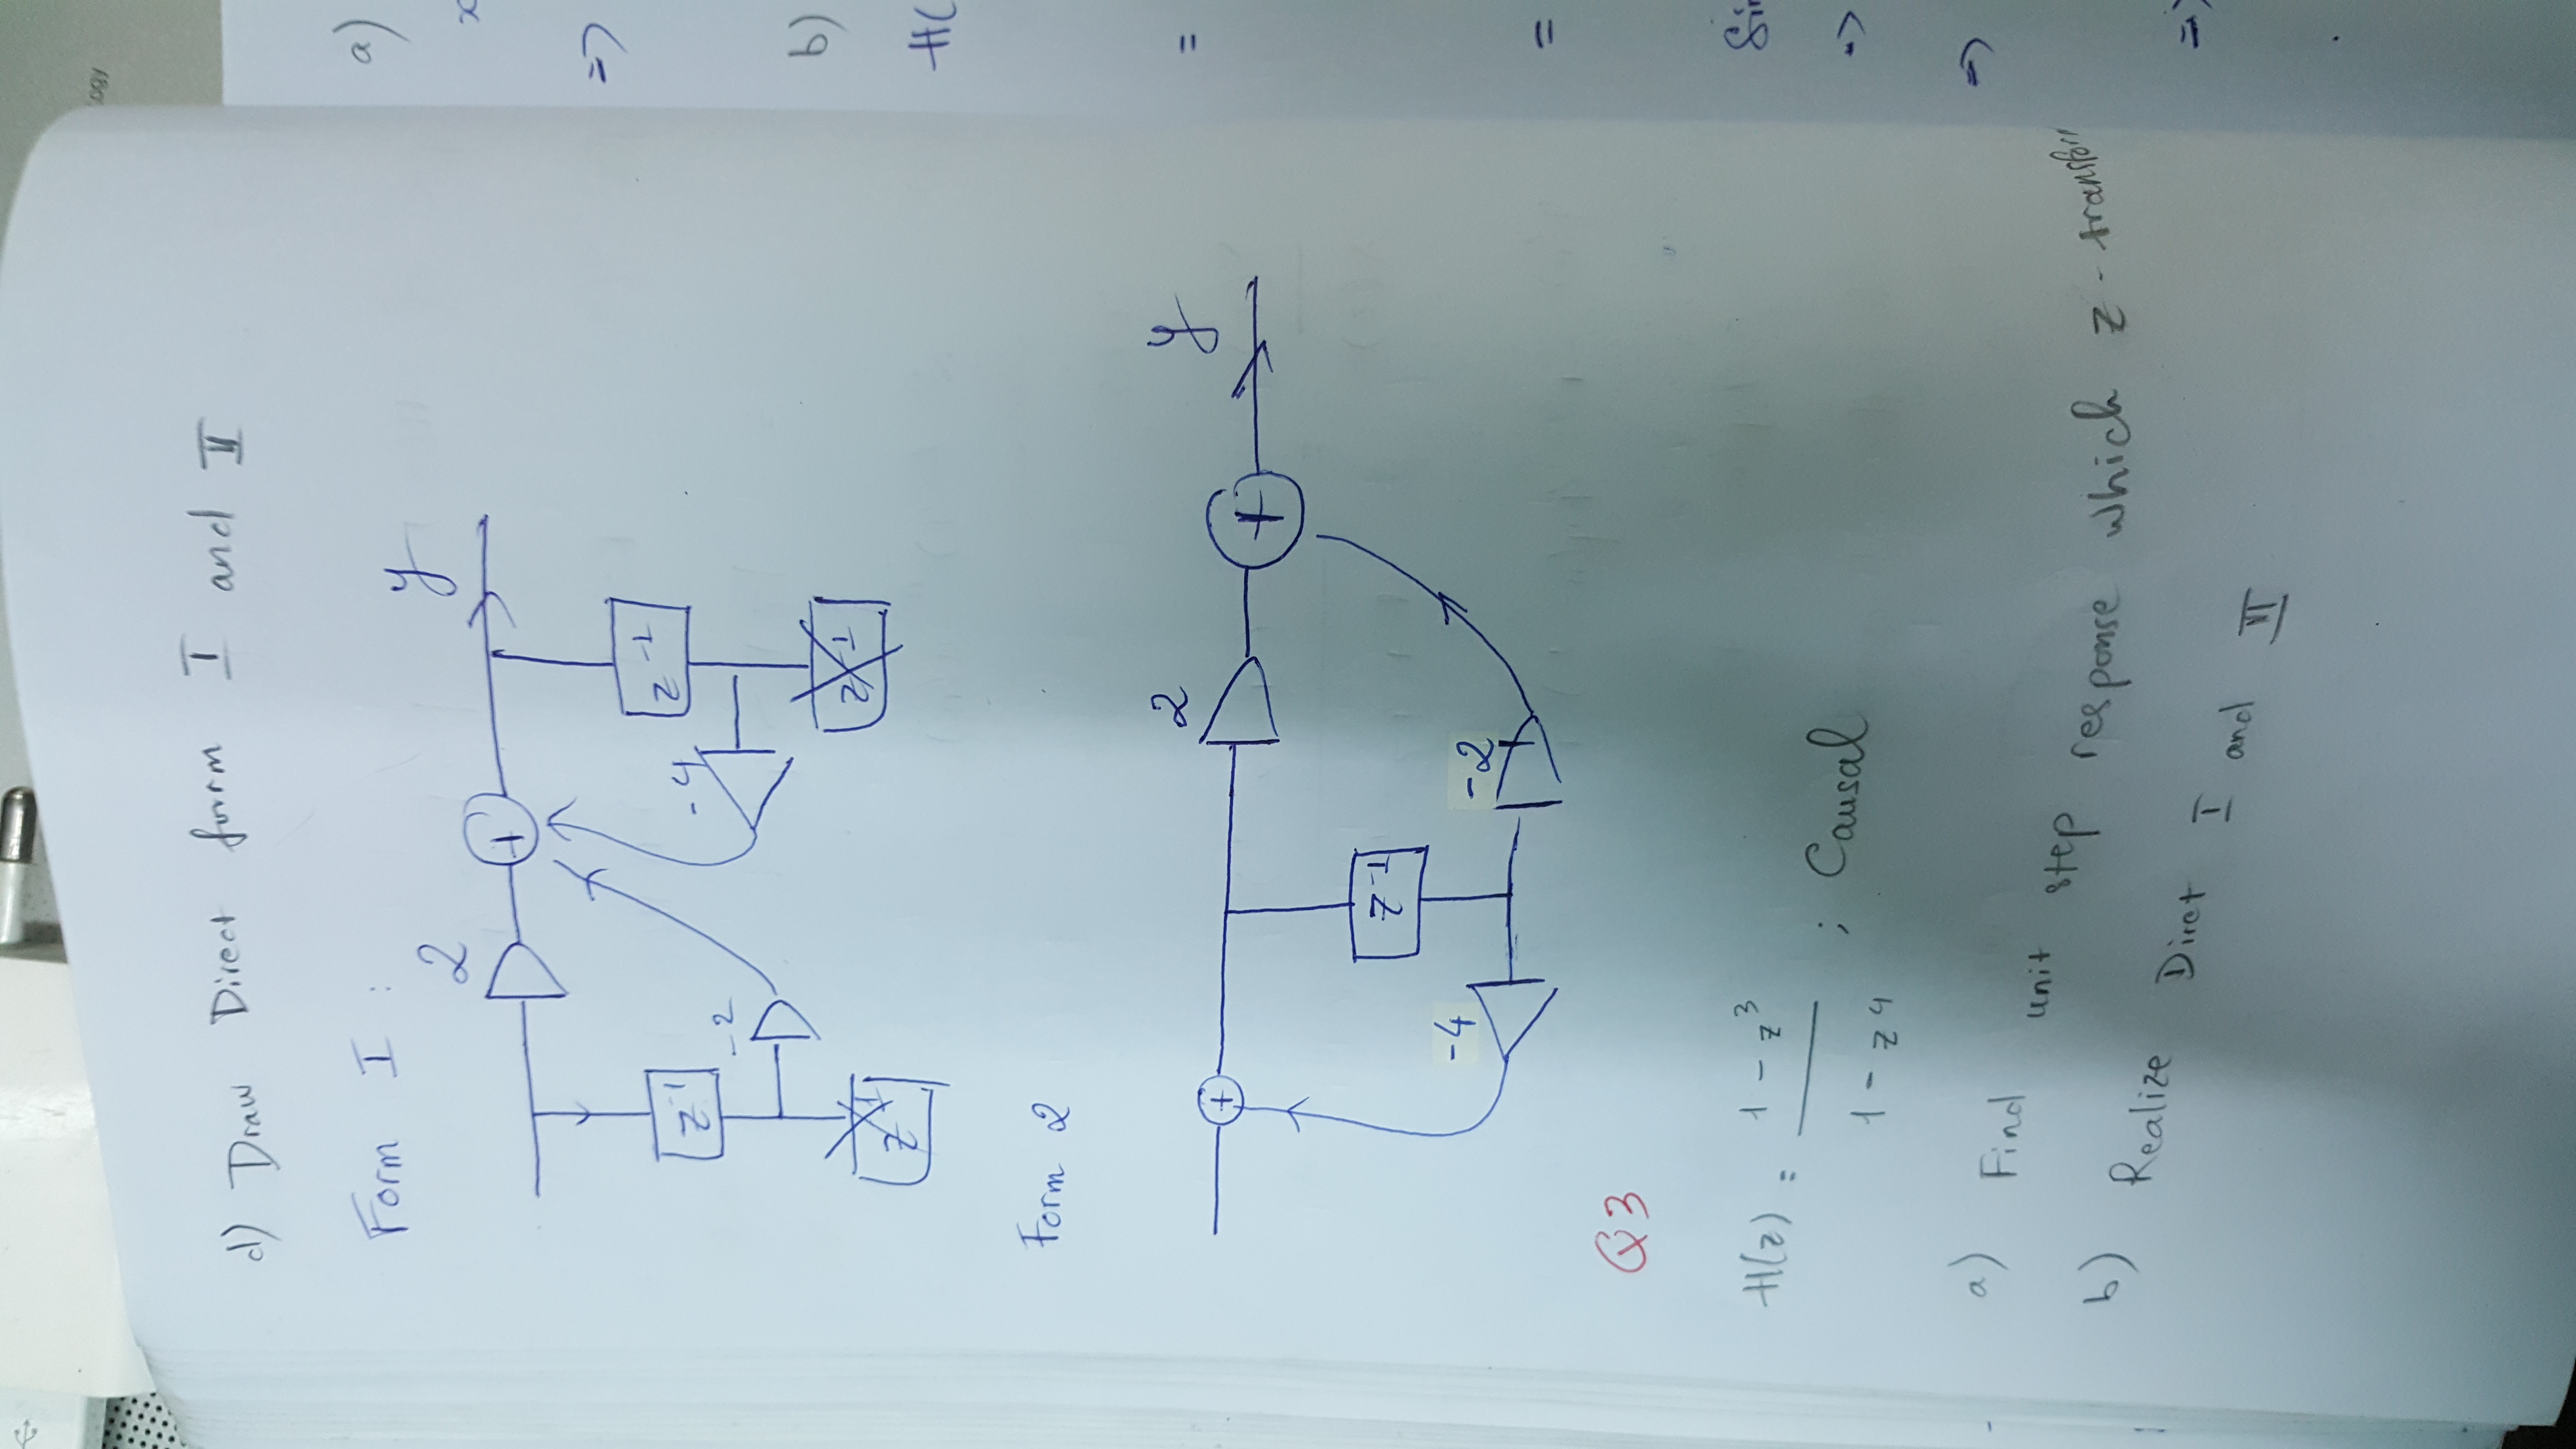 d) Draw Direct form I and II
Form I :
2
y
+
z-1
-2
z-1
-4
z-1
z-1
Form 2
2
y
+
+
z-1
-4
-2
Q3
H(z) = 1 - z3
1 - z4
; Causal
a) Find unit step response which z-transfor
b) Realize Dirct I and II
a)
x
=>
b)
H(
=
=
=>
=>
=>